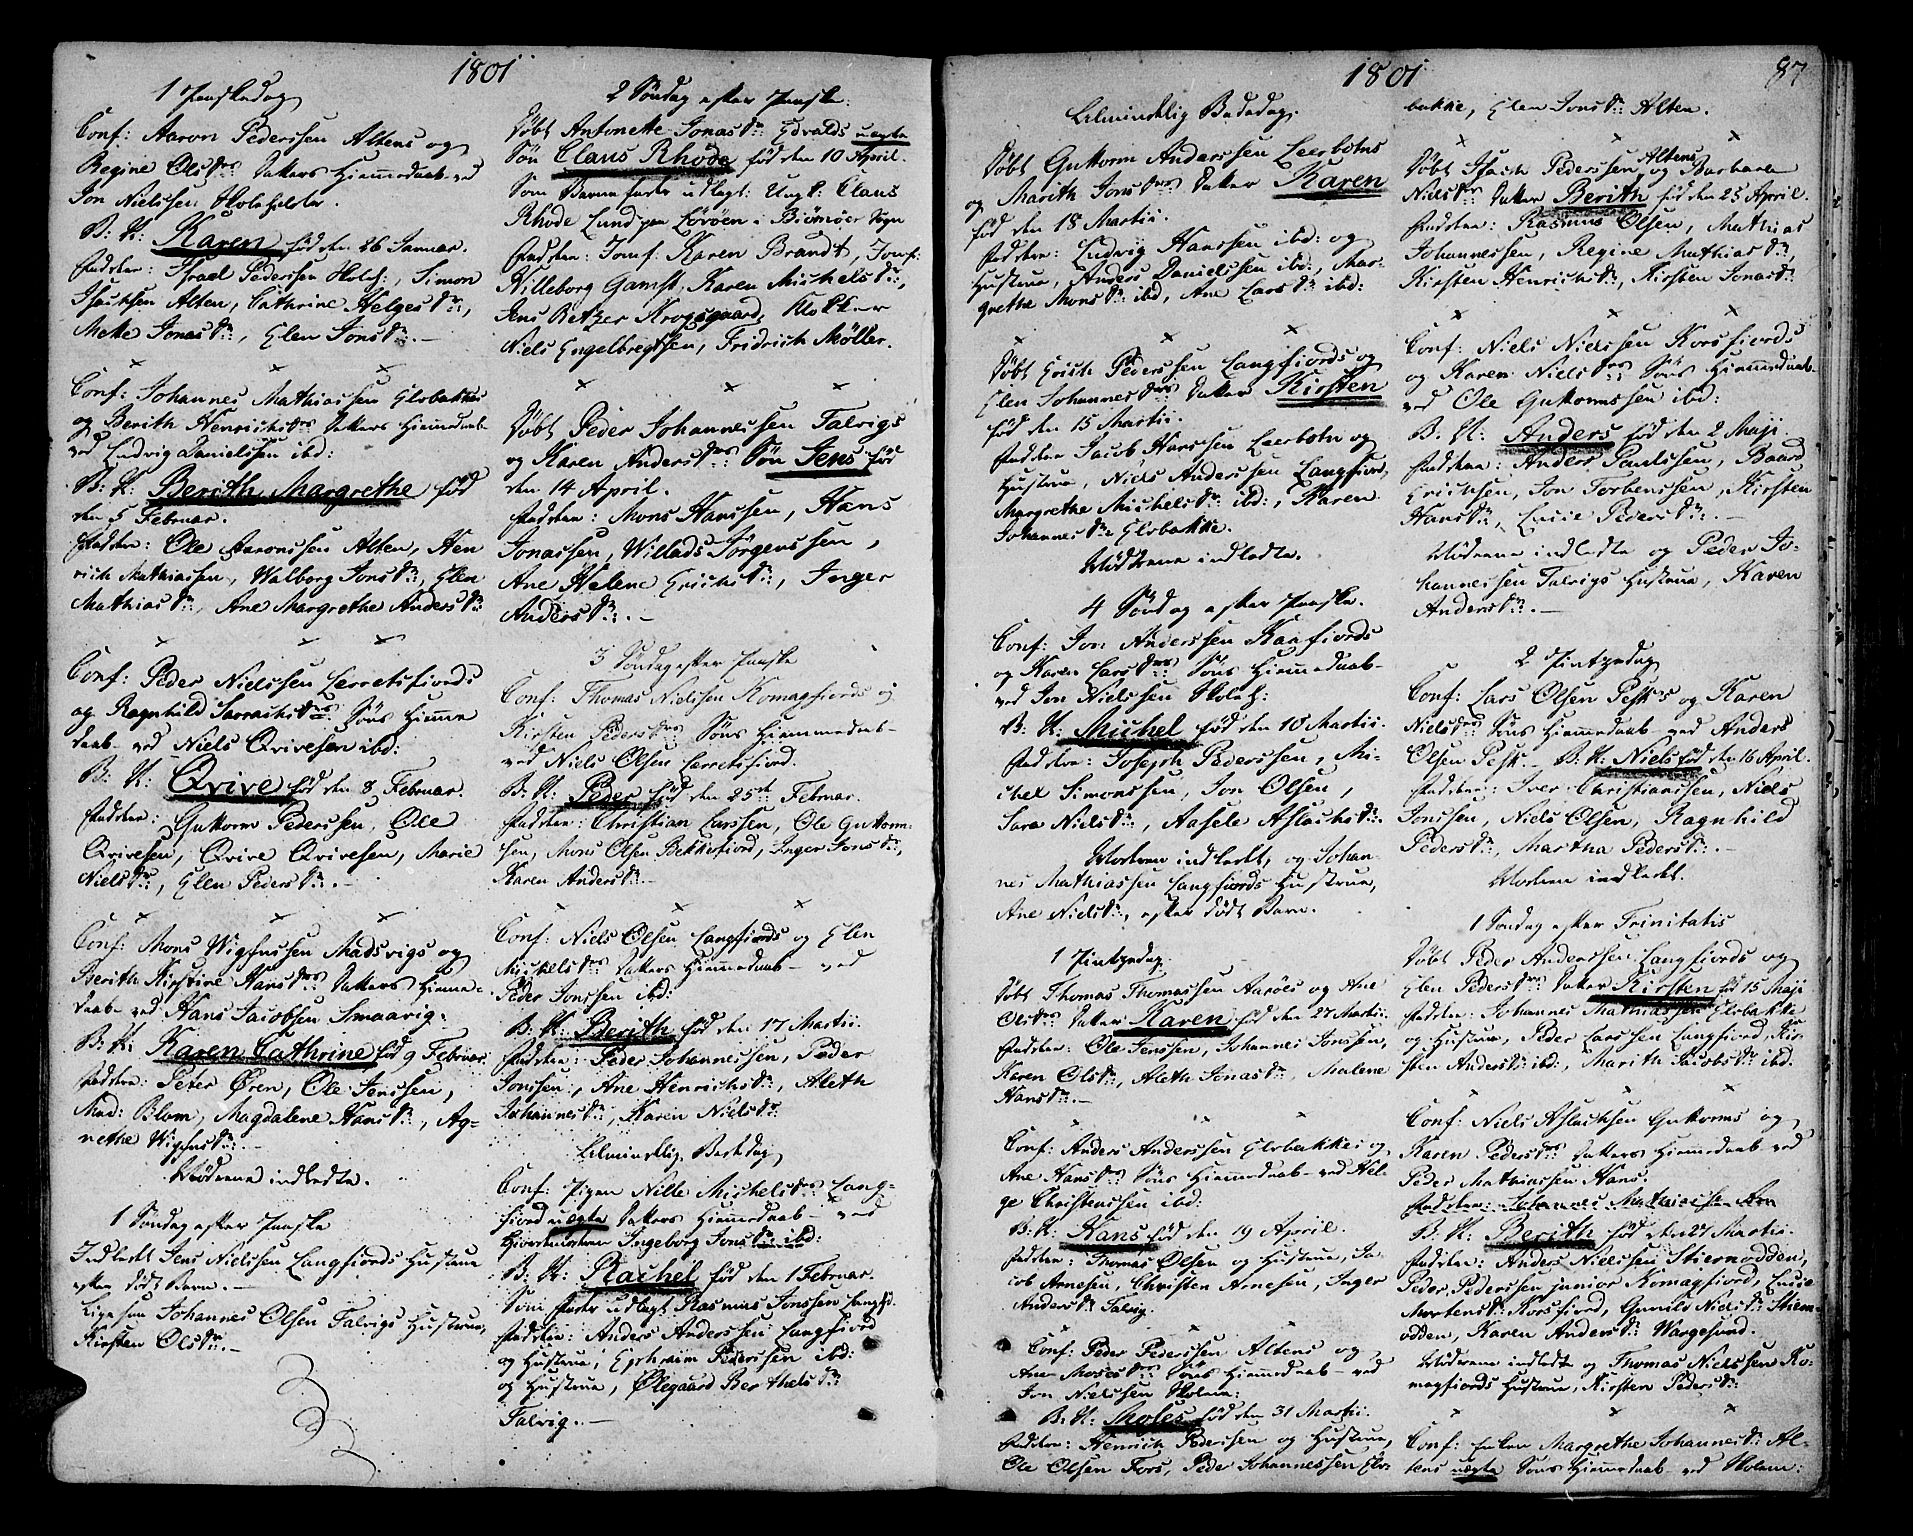 1801
1 Paaskedag
Conf: Aaron Pederssen Altens og
Regine Olsdrs Datters Hiemedaab ved
Jon Nielssen Skoleholder.
B. N: Karen fød den 26 Januar.
Fadderne: Israel Pederssen Holst:, Simon
Isachsen Alten, Cathrine Helgesdr:,
Mette Jonasdr:, Elen Jonsdr:.
Conf: Johannes Mathiassen Elvbakkes
og Berith Henrichsdrs Datters Hiemedaab
ved Ludvig Danielssen ibd:
B. N: Berith Margrethe fød
den 5 Februar.
Fadderne: Ole Aaronssen Alten, Hen
rich Mathiassen, Walborg Jonsdr:, Elen
Mathiasdr:, Ane Margrethe Andersdr:
Conf: Peder Nielssen Lerretsfiords
og Ragnhild Sarrachsdrs Søns Hiemme
daab ved Niels Qvivesen ibd:
B. N: Qvive fød den 8 Februar.
Fadderne: Guttorm Pederssen, Ole
Qvivesen, Qvive Qvivesen, Marie
Nielsdr:, Elen Pedersdr:.
Conf: Mons Wigfussen Madsvigs og
Berith Kirstine Hansdrs Datters Hiemme-
daab ved Hans Jacobsen Smaavig:
B: N: Karen Cathrine fød 9 Februar.
Fadderne: Peter Øren, Ole Jenssen,
Mad: Blom, Magdalene Hansdr:, Ag-
nethe Wigfusdr:
Mødrene indledte.
1 Søndag efter Paaske
Indledt Jens Nielssen Langfiords Hustrue
efter dødt Barn.
Ligesom Johannes Olsen Talvigs Hustrue,
Kirsten Olsdr:.
2 Søndag efter Paaske:
Døbt Antonette Jonasdr: Edvalds uægte
Søn Claus Rhode fød den 10 April.
Som Barnefader udlagt: Ungk: Claus
Rhode Lund paa Lørøen i Biørnøer Sogn
Fadderne: Jomf: Karen Brandt, Jomf:
Killeborg Gamst, Karen Michelsdr:,
Jens Betzer Krogsgaard, Klokker
Niels Engelbregtsen, Fridrich Møller.
Døbt Peder Johannessen Talvigs
og Karen Andersdrs: Søn Jens fød
den 14 April.
Fadderne: Mons Hanssen, Hans
Jonassen, Willads Jørgenssen,
Ane Helene Erichsdr:, Inger
Andersdr:.
3 Søndag efter Paaske
Conf: Thomas Nielssen Komagfiords og
Kirsten Pedersdrs Søns Hiemmedaab
ved Niels Olsen Lerretsfiord.
B. N: Peder fød den 25de Februar.
Fadderne: Christian Larssen, Ole Guttorm-
sen, Mons Olsen Bekkefiord, Inger Jonsdr:,
Karen Andersdr:
Conf: Niels Olsen Langfiords og Elen
Michelsdrs Datters Hiemmedaab ved
Peder Jonssen ibd:
B. N: Berith fød den 17 Martii.
Fadderne: Peder Johannessen, Peder
Jonssen, Ane Henrichsdr:, Aleth
Johannesdr:, Karen Nielsdr:
Almindelig Bededag
Conf: Pigen Nille Michelsdrs Lang-
fiord uægte Datters Hiemmedaab ved
Giordemoderen Ingeborg Jonsdr: ibd:
B. N: Rachel fød den 1 Februar.
Som Fader udlagt Rasmus Jonssen Langfd.
Fadderne: Anders Anderssen Langfiord
og Hustrue, Ephraim Pederssen ibd:
og Hustrue, Ølegaard Berthelsdr:
Talvig.
1801
87
Almindelig Bededag.
Døbt Guttorm Anderssen Leerbotns
og Marith Jonsdrs Datter Karen
fød den 18 Martii.
Fadderne: Ludvig Hanssen ibd: og
Hustrue, Anders Danielssen ibd:, Mar-
grethe Monsdr: ibd, Ane Larsdr: ibd:
Døbt Erich Pederssen Langfiords og
Elen Johannesdrs: Datter Kirsten
fød den 15 Martii.
Fadderne Jacob Hanssen Leerbotn og
Hustrue, Niels Anderssen Langfiord,
Margrethe Michelsdr: ibd:, Karen
Johannesdr: Elvbakke.
Mødrene indledte.
4 Søndag efter Paaske.
Conf: Jon Anderssen Kaafiords
og Karen Larsdrs Søns Hiemmedaab
ved Jon Nielssen Skoleh:
B. N: Michel fød den 10 Martii.
Fadderne: Joseph Pederssen, Mi-
chel Simonssen, Jon Olsen,
Sara Nielsdr:, Aasele Aslachsdr:
Moderen indledt, og Johan-
nes Mathiassen Langfiords Hustrue,
Ane Nielsdr:, efter dødt Barn.
1 Pintzedag
Døbt Thomas Thomassen Aarøes og Ane
Olsdrs Datter Karen fød den 27 Martii.
Fadderne: Ole Jenssen, Johannes Jonssen,
Karen Olsdr:, Aleth Jonasdr:, Malene
Hansdr:.
Conf: Anders Anderssen Elvbakkes og
Ane Hansdrs Søns Hiemmedaab ved Hel-
ge Christenssen ibd:
B. N: Hans fød den 19 April.
Fadderne: Thomas Olsen og Hustrue, Ja-
cob Arnesen, Christen Arnesen, Inger
Andersdr: Talvig.
Conf: Peder Pederssen Altens og
Ane Mosesdrs Søns Hiemmedaab ved
Jon Nielssen Skolem:
B. N: Moses fød den 31 Martii.
Fadderne: Henrich Pederssen og Hustrue,
Ole Olsen Fors, Peder Johannessen Elv-
1801
bakke, Elen Jonsdr: Alten.
Døbt Isach Pederssen Altens og Barbara
Nielsdrs Datter Berith fød den 25 April.
Fadderne: Rasmus Olsen, Mathias
Johannessen, Regine Mathiasdr:,
Kirsten Henrichsdr:, Kirsten Jonasdr:
Conf: Niels Nielssen Korsfiords
og Karen Nielsdrs: Søns Hiemmedaab
ved Ole Guttormssen ibd:
B. N: Anders fød den 2 Maji
Fadderne: Anders Paulssen, Baard
Erichsen, Jon Torbenssen, Kirsten
Hansdr:, Lucie Pedersdr:.
Mødrene indledte og Peder Jo-
hannessen Talvigs Hustrue, Karen
Andersdr:.
2 Pintzedag
Conf: Lars Olsen Pesks og Karen
Nielsdrs Søns Hiemmedaab ved Anders
Olsen Pesk. B. N: Niels fød den 16 April.
Fadderne: Iver Christianssen, Niels
Jonssen, Niels Olsen, Ragnhild
Pedersdr:, Martha Pedersdr:.
Moderen indledt.
1 Søndag efter Trinitatis
Døbt Peder Anderssen Langfiords og
Elen Pedersdrs Datter Kirsten fød 15 Maji
Fadderne: Johannes Mathiassen Elvbakke
og Hustrue, Peder Larssen Langfiord, Kir-
sten Andersdr: ibd:, Marith Jacobsdr: ibd.
Conf: Niels Aslachsen Guttorms og
Karen Pedersdrs Datters Hiemmedaab ved
Peder Mathiassen Hans.
Fadderne: Johannes Mathiassen
B. N: Berith fød den 27 Martii.
Fadderne: Anders Nielssen Stiernodden,
Peder Pederssen junior Komagfiord, Lucie
Mortensdr: Korsfiord, Gunild Nielsdr: Stiern-
odden, Karen Andersdr: Wargesund.
Mødrene indledte og Thomas Nielssen Ko-
magfiords Hustrue, Kirsten Pedersdr:
Conf: Enken Margrethe Johannesdr: Al-
tens uægte Søns Hiemmedaab ved Skolem: